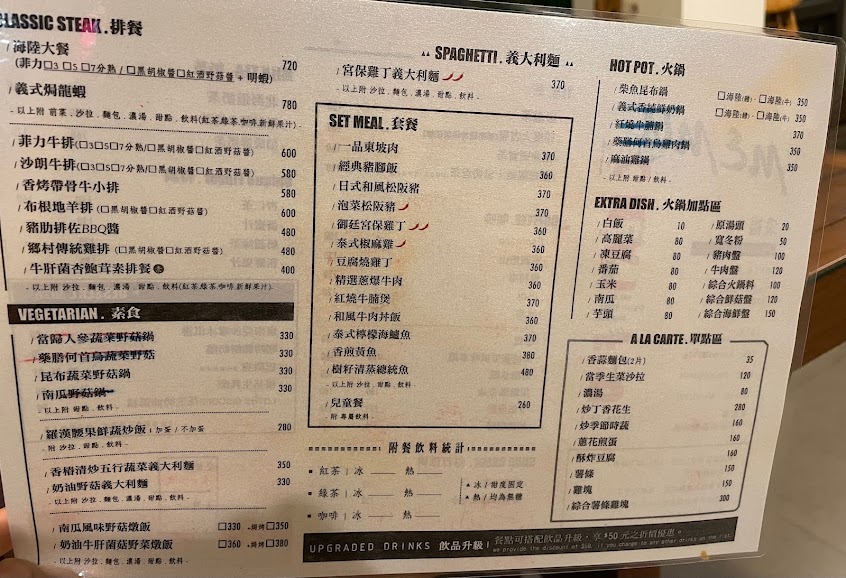 CLASSIC STEAK . 排餐
海陸大餐
(菲力□3 □5 □7分熟 / □黑胡椒醬□紅酒野菇醬 + 明蝦) 720
義式焗龍蝦 780
- 以上附 前菜 . 沙拉 . 麵包 . 濃湯 . 甜點 . 飲料(紅茶.綠茶.咖啡.新鮮果汁) -
菲力牛排(□3□5□7分熟/□黑胡椒醬□紅酒野菇醬) 600
沙朗牛排(□3□5□7分熟/□黑胡椒醬□紅酒野菇醬) 580
香烤帶骨牛小排 580
布根地羊排 (□黑胡椒醬□紅酒野菇醬) 600
豬肋排佐BBQ醬 480
鄉村傳統雞排 (□黑胡椒醬□紅酒野菇醬) 480
牛肝菌杏鮑茸素排餐 400
- 以上附 沙拉 . 麵包 . 濃湯 . 甜點 . 飲料(紅茶.綠茶.咖啡.新鮮果汁) -
VEGETARIAN . 素食
當歸人參蔬菜野菇鍋 330
藥膳何首烏蔬菜野菇 330
昆布蔬菜野菇鍋 330
南瓜野菇鍋 330
- 以上附 甜點 . 飲料 -
羅漢腰果鮮蔬炒飯 | 加蛋 / 不加蛋 280
- 附 沙拉 . 甜點 . 飲料 -
香椿清炒五行蔬菜義大利麵 350
奶油野菇義大利麵 330
- 以上附 沙拉 . 麵包 . 濃湯 . 甜點 . 飲料 -
南瓜風味野菇燉飯 □330 +焗烤□350
奶油牛肝菌菇野菜燉飯 □360 +焗烤□380
- 以上附 沙拉 . 麵包 . 濃湯 . 甜點 . 飲料 -
SPAGHETTI . 義大利麵
宮保雞丁義大利麵 370
- 以上附 沙拉 . 麵包 . 濃湯 . 甜點 . 飲料 -
SET MEAL . 套餐
一品東坡肉 370
經典豬腳飯 360
日式和風松阪豬 370
泡菜松阪豬 370
御廷宮保雞丁 360
泰式椒麻雞 360
豆腐燒雞丁 360
精選蔥爆牛肉 360
紅燒牛腩煲 360
和風牛肉丼飯 360
泰式檸檬海鱸魚 360
香煎黃魚 360
樹籽清蒸總統魚 480
- 以上附 沙拉 . 濃湯 . 甜點 . 飲料 -
兒童餐 260
- 附 專屬飲料 -
附餐飲料統計
紅茶 | 冰 ____ 熱 ____
綠茶 | 冰 ____ 熱 ____
咖啡 | 冰 ____ 熱 ____
▲ 冰 / 甜度固定
▲ 熱 / 均為無糖
HOT POT . 火鍋
柴魚昆布鍋 □海陸(豬)‧□海陸(牛) 350
義式香純鮮奶鍋 □海陸(豬)‧□海陸(牛) 350
紅燒牛腩鍋 370
藥膳何首烏雞肉鍋 350
麻油雞鍋 350
- 以上附 甜點 / 飲料 -
EXTRA DISH . 火鍋加點區
白飯 10
高麗菜 80
凍豆腐 80
番茄 80
玉米 80
南瓜 80
芋頭 80
原湯頭 20
寬冬粉 50
豬肉盤 100
牛肉盤 120
綜合火鍋料 100
綜合鮮菇盤 120
綜合海鮮盤 150
A LA CARTE . 單點區
香蒜麵包(2片) 35
當季生菜沙拉 120
濃湯 80
炒丁香花生 280
炒季節時蔬 160
蔥花煎蛋 160
酥炸豆腐 160
薯條 150
雞塊 150
綜合薯條雞塊 300
UPGRADED DRINKS 飲品升級 ! 餐點可搭配飲品升級，享 $50 元之折價優惠。
we provide the discount of $50, if you change to any other drinks on the list.